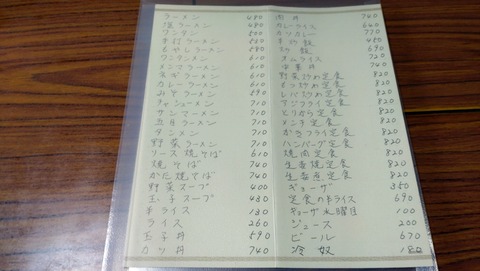 ラーメン 480
塩ラーメン 480
ワンタン 500
手打ラーメン
もやしラーメン 590
ワンタンメン 610
メンマラーメン 610
ネギラーメン 610
カレーラーメン 610
ラーメン 590
チャシューメン 710
サンマーメン 710
五目ラーメン 710
タンメン 710
野菜ラーメン 710
ソース焼そば 610
焼そば 740
かた焼そば 740
野菜スープ 400
玉子スープ 430
半ライス 130
ライス 260
玉子丼 590
カツ丼 740
肉丼 740
カレライス 640
カツカレー 770
半炒飯 450
炒飯 690
オムライス 720
中華丼 740
野菜炒め定食 820
もつ炒め定食 820
レバ炒め定食 820
アジフライ定食 820
とりから定食 820
メンチ定食 820
かきフライ定食 820
ハンバーグ定食 820
焼肉定食 820
生姜焼定食 820
定食 820
ギョーザ 350
定食の半ライス 690
ギョーザ水曜日 100
ジュース 200
ビール 670
冷奴 180